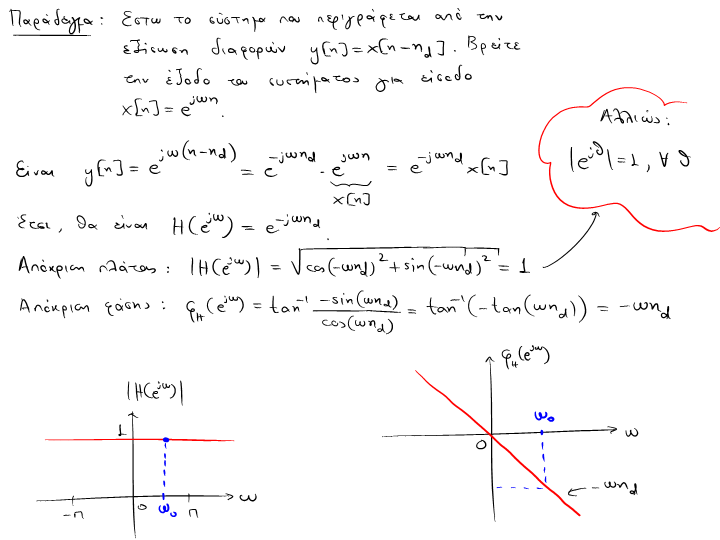 Παράδειγμα: Έστω το σύστημα που περιγράφεται από την
εξίσωση διαφορών y[n]=x[n-n_d]. Βρείτε
την έξοδο του συστήματος για είσοδο
x[n]=e^{jωn}.
Αλλιώς:
|e^{jθ}|=1, ∀ θ
Είναι y[n]=e^{jω(n-n_d)} = e^{-jωn_d} · e^{jωn} = e^{-jωn_d} x[n]
x[n]
Έτσι, θα είναι H(e^{jω})=e^{-jωn_d}.
Απόκριση πλάτους: |H(e^{jω})| = √(cos(-ωn_d)^2+sin(-ωn_d)^2) = 1
Απόκριση φάσης: φ_H(e^{jω}) = tan^{-1} (-sin(ωn_d))/(cos(ωn_d)) = tan^{-1}(-tan(ωn_d)) = -ωn_d
|H(e^{jω})|
1
-π 0 ω_0 π ω
φ_H(e^{jω})
ω_0
0 ω
-ωn_d